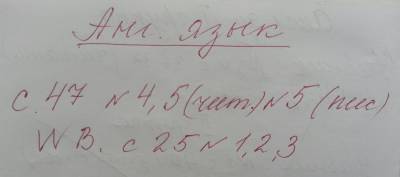 Анг. язык
с. 47 N 4, 5 (чит.) N 5 (пис)
W B. с 25 N 1, 2, 3